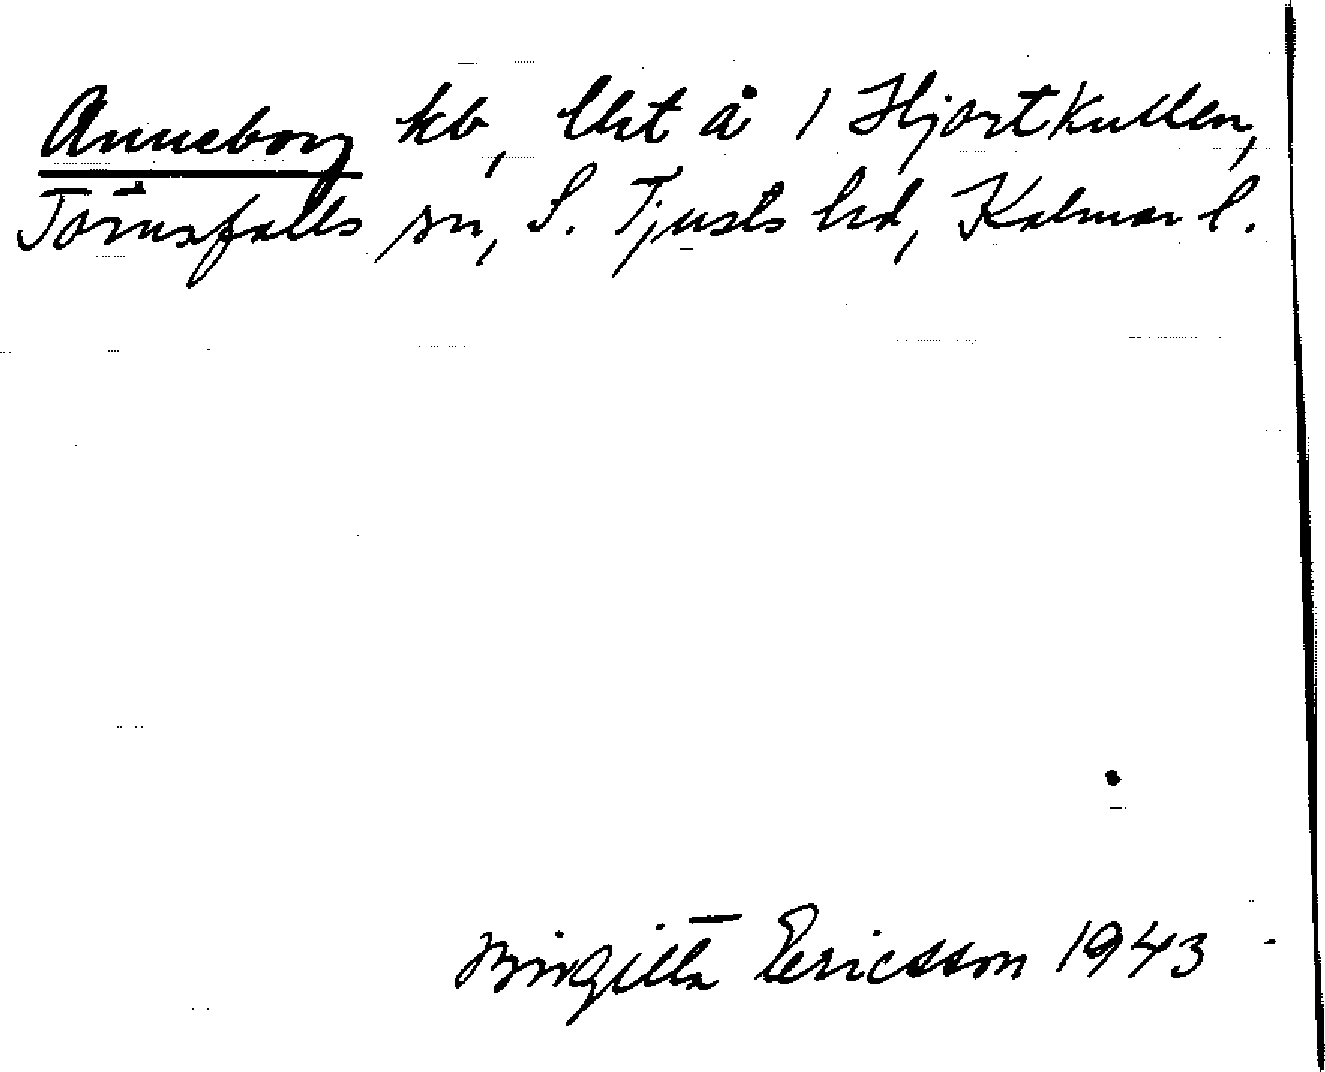 Anneborg kb, lht å 1 Hjortkullen,
Törnsfalls sn, S. Tjusts hd, Kalmar l.
Birgitta Ericsson 1943